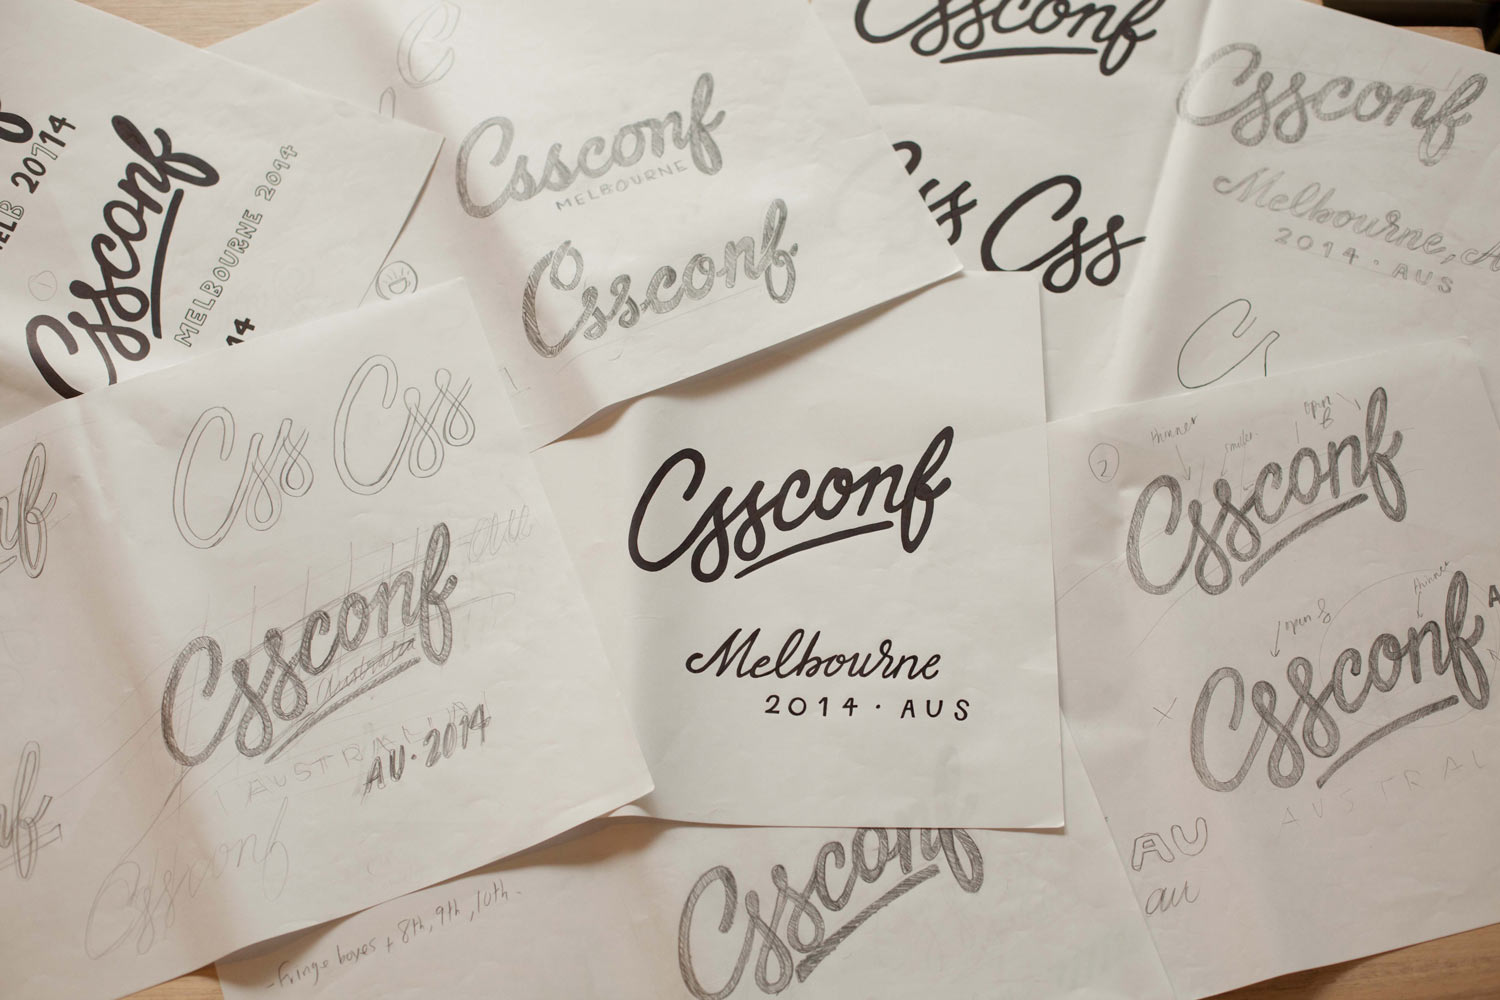 Css
Cssconf
Cssconf
MELB 20714
Cssconf
MELBOURNE 2014
14
Cssconf
MELBOURNE
Cssconf
Css
Cssconf
Melbourne, A
2014 · AUS
C
Css Css
Cssconf
Australia
AUSTRALIA
AU · 2014
Cssconf
Cssconf
Melbourne
2014 · AUS
2
thinner
smaller
open
Cssconf
open s
thinner
Cssconf
AUSTRAL
AU
au
Cssconf
- Fringe boxes + 8th, 9th, 10th -